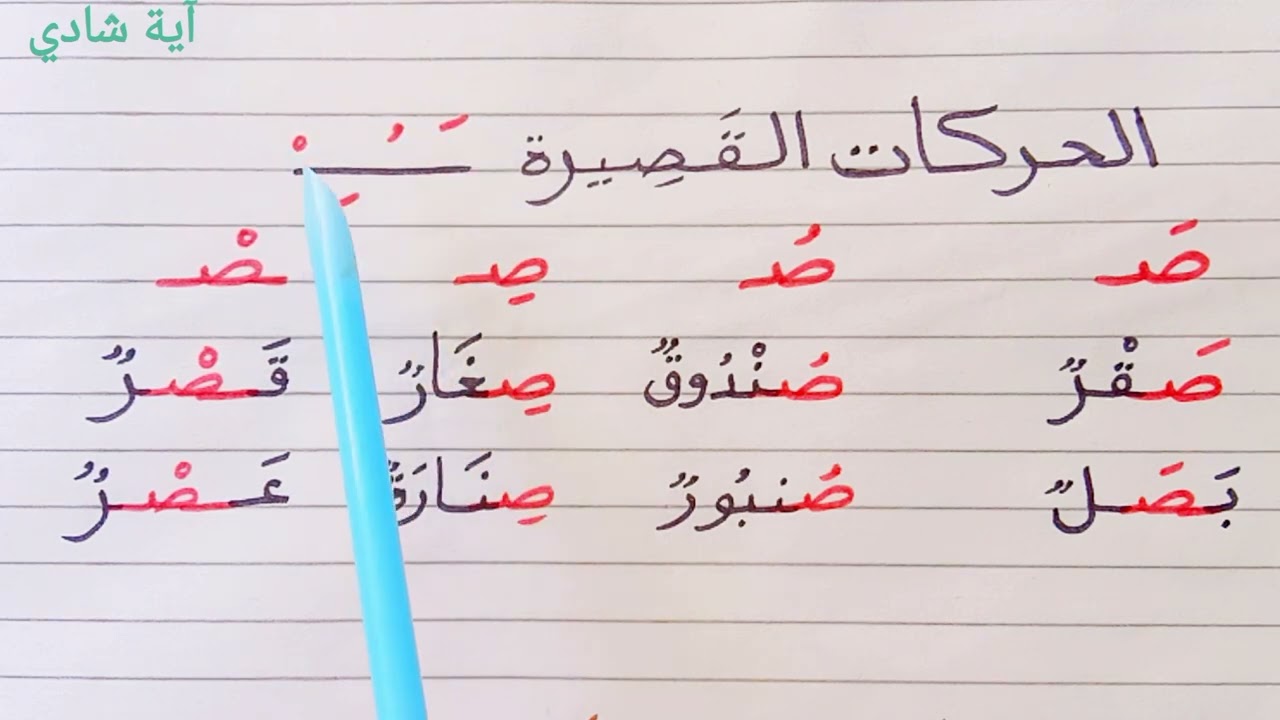 آية شادي
الحركات القَصِيرة ـَـُـِـْ
صَـ صُـ صِـ ـصْـ
صَـقْرٌ صُنْدُوقٌ صِغَارٌ قَـصْـرٌ
بَـصَـلٌ صُنبُورٌ صِنَارَةٌ عَـصْـرٌ